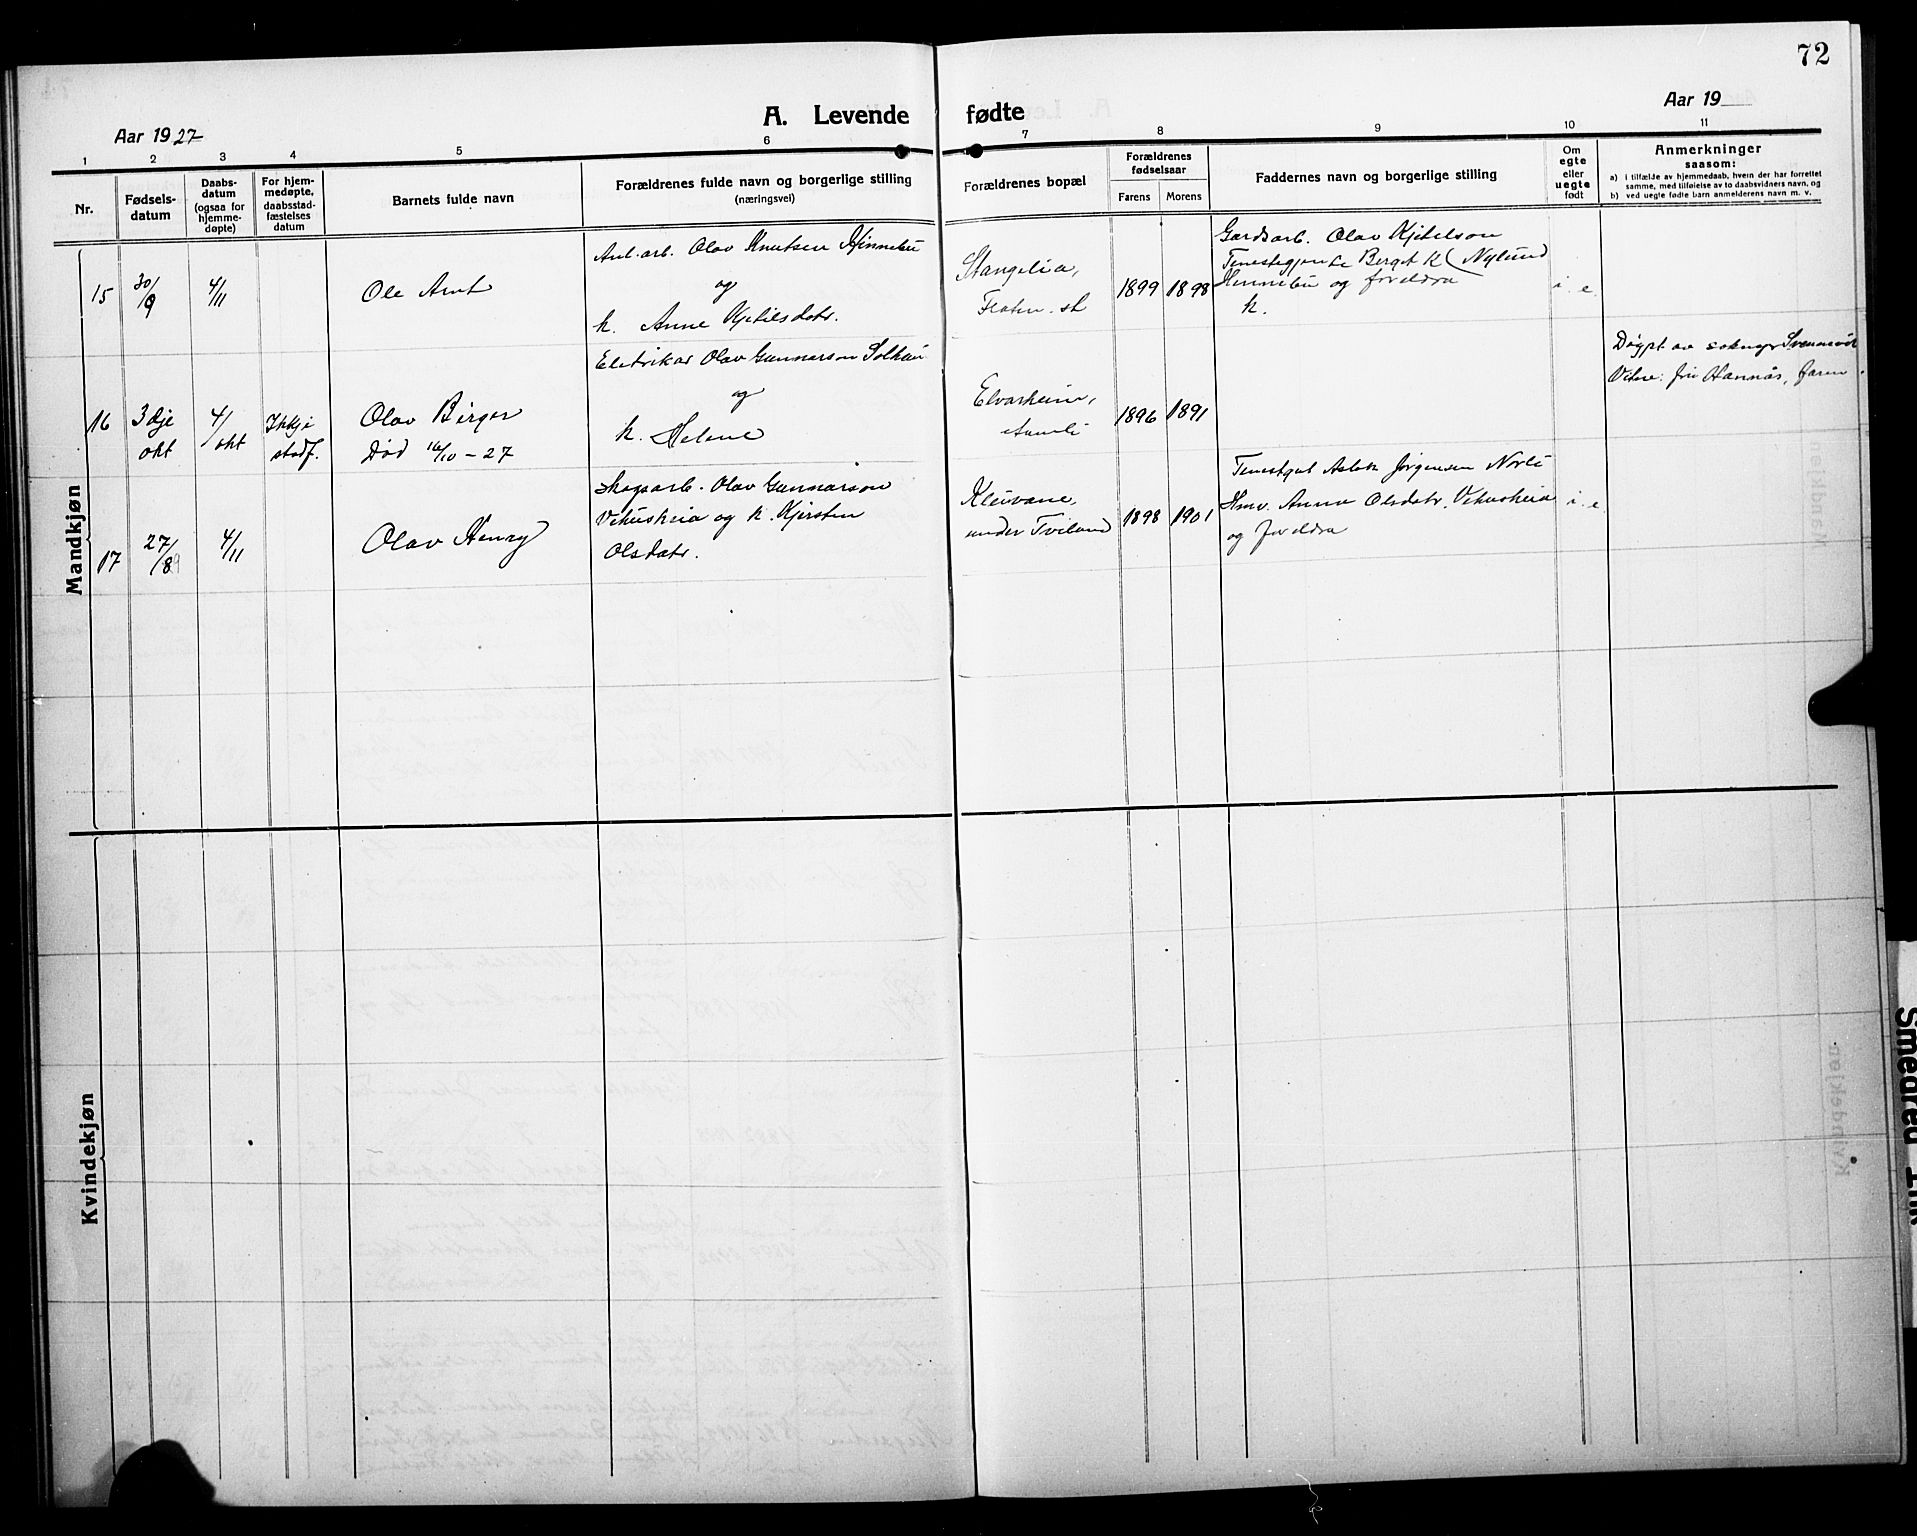 72
A. Levende fødte
Aar 1927
Aar 19
1 2 3 4 5 6 7 8 9 10 11
Nr.
Fødsels-
datum
Daabs-
datum
(ogsaa for
hjemme-
døpte)
For hjem-
medøpte,
daabsstad-
fæstelses
datum
Barnets fulde navn
Forældrenes fulde navn og borgerlige stilling
(næringsvei)
Forældrenes bopæl
Forældrenes
fødselsaar
Farens Morens
Faddernes navn og borgerlige stilling
Om
egte
eller
uegte
født
Anmerkninger
saasom:
a) i tilfælde av hjemmedaab, hvem der har forrettet
samme, med tilføielse av to daabsvidners navn, og
b) ved uegte fødte barn anmelderens navn m. v.
Mandkjøn
15
30/9
4/11
Ole Arnt
Anl. arb. Olav Knutsen Hinnebu
og
k. Anne Kjetilsdatr.
Stangelia,
st
1899 1898
Gardsarb. Olav Kjetelson
Tenestegjente Berget K (Nylund
Hinnebu og foreldra
k.
i. e.
16
3dje
okt
4/
okt
Ikkje
stadf.
Olav Birger
Død 16/10 - 27
Eletrikar Olav Gunnarson Solhau
og
k. Helene
Elvarheim,
Aamli
1896 1891
Døypt av soknepr Svennevik
Vitne: frú Hannås, faren.
17
27/8
4/11
Olav Henry
Skogsarb. Olav Gunnarson
Vehusheia og k. Kjersten
Olsdatr.
Kleivane,
under Tveiland
1898 1901
Tenestgut Aslak Jørgensen Norli
Huv. Anna Olsdatr. Vehusheia
og foreldra
i. e.
Kvindekjøn
Smeared Ink